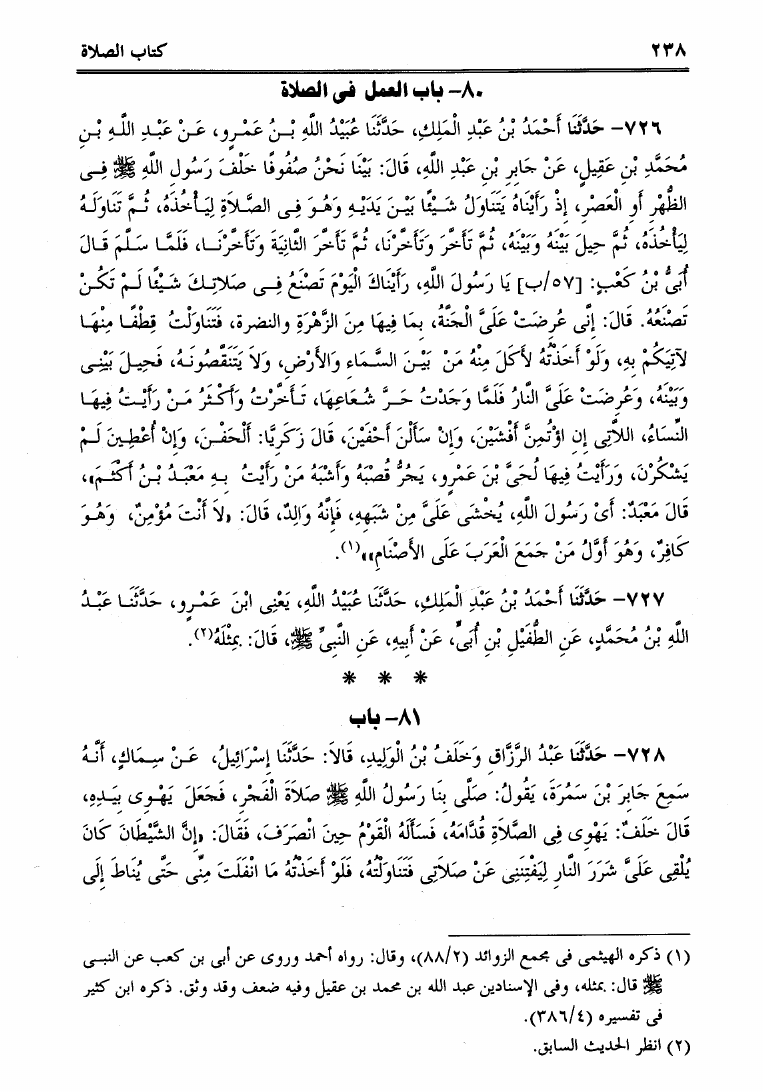 ٢٣٨ كتاب الصلاة
٨٠- باب العمل فى الصلاة
٧٢٦- حَدَّثَنَا أَحْمَدُ بْنُ عَبْدِ الْمَلِكِ، حَدَّثَنَا عُبَيْدُ اللَّهِ بْنُ عَمْرٍو، عَنْ عَبْدِ اللَّهِ بْنِ
مُحَمَّدِ بْنِ عَقِيلٍ، عَنْ جَابِرِ بْنِ عَبْدِ اللَّهِ، قَالَ: بَيْنَا نَحْنُ صُفُوفًا خَلْفَ رَسُولِ اللَّهِ ﷺ فِى
الظُّهْرِ أَوِ الْعَصْرِ، إِذْ رَأَيْنَاهُ يَتَنَاوَلُ شَيْئًا بَيْنَ يَدَيْهِ وَهُوَ فِى الصَّلَاةِ لِيَأْخُذَهُ، ثُمَّ تَنَاوَلَهُ
لِيَأْخُذَهُ، ثُمَّ حِيلَ بَيْنَهُ وَبَيْنَهُ، ثُمَّ تَأَخَّرَ وَتَأَخَّرْنَا، ثُمَّ تَأَخَّرَ الثَّانِيَةَ وَتَأَخَّرْنَا، فَلَمَّا سَلَّمَ قَالَ
أُبَىُّ بْنُ كَعْبٍ: [٥٧/ب] يَا رَسُولَ اللَّهِ، رَأَيْنَاكَ الْيَوْمَ تَصْنَعُ فِى صَلَاتِكَ شَيْئًا لَمْ تَكُنْ
تَصْنَعُهُ. قَالَ: إِنِّى عُرِضَتْ عَلَىَّ الْجَنَّةُ، بِمَا فِيهَا مِنَ الزَّهْرَةِ والنضرة، فَتَنَاوَلْتُ قِطْفًا مِنْهَا
لآتِيَكُمْ بِهِ، وَلَوْ أَخَذْتُهُ لأَكَلَ مِنْهُ مَنْ بَيْنَ السَّمَاءِ وَالأَرْضِ، وَلاَ يَتَنَقَّصُونَهُ، فَحِيلَ بَيْنِى
وَبَيْنَهُ، وَعُرِضَتْ عَلَىَّ النَّارُ فَلَمَّا وَجَدْتُ حَرَّ شُعَاعِهَا، تَأَخَّرْتُ وَأَكْثَرُ مَنْ رَأَيْتُ فِيهَا
النِّسَاءُ، اللاَّتِى إِنِ اؤْتُمِنَّ أَفْشَيْنَ، وَإِنْ سَأَلْنَ أَحْفَيْنَ، قَالَ زَكَرِيَّا: أَلْحَفْنَ، وَإِنْ أُعْطِينَ لَمْ
يَشْكُرْنَ، وَرَأَيْتُ فِيهَا لُحَىَّ بْنَ عَمْرٍو، يَجُرُّ قُصْبَهُ وَأَشْبَهُ مَنْ رَأَيْتُ بِهِ مَعْبَدُ بْنُ أَكْثَمَ»،
قَالَ مَعْبَدٌ: أَىْ رَسُولَ اللَّهِ، يُخْشَى عَلَىَّ مِنْ شَبَهِهِ، فَإِنَّهُ وَالِدٌ، قَالَ: «لاَ أَنْتَ مُؤْمِنٌ، وَهُوَ
كَافِرٌ، وَهُوَ أَوَّلُ مَنْ جَمَعَ الْعَرَبَ عَلَى الأَصْنَامِ»(١).
٧٢٧- حَدَّثَنَا أَحْمَدُ بْنُ عَبْدِ الْمَلِكِ، حَدَّثَنَا عُبَيْدُ اللَّهِ، يَعْنِى ابْنَ عَمْرٍو، حَدَّثَنَا عَبْدُ
اللَّهِ بْنُ مُحَمَّدٍ، عَنِ الطُّفَيْلِ بْنِ أُبَىٍّ، عَنْ أَبِيهِ، عَنِ النَّبِىِّ ﷺ، قَالَ: بِمِثْلَهُ(٢).
* * *
٨١- باب
٧٢٨- حَدَّثَنَا عَبْدُ الرَّزَّاقِ وَخَلَفُ بْنُ الْوَلِيدِ، قَالاَ: حَدَّثَنَا إِسْرَائِيلُ، عَنْ سِمَاكٍ، أَنَّهُ
سَمِعَ جَابِرَ بْنَ سَمُرَةَ، يَقُولُ: صَلَّى بِنَا رَسُولُ اللَّهِ ﷺ صَلاَةَ الْفَجْرِ، فَجَعَلَ يَهْوِى بِيَدِهِ،
قَالَ خَلَفٌ: يَهْوِى فِى الصَّلاَةِ قُدَّامَهُ، فَسَأَلَهُ الْقَوْمُ حِينَ انْصَرَفَ، فَقَالَ: «إِنَّ الشَّيْطَانَ كَانَ
يُلْقِى عَلَىَّ شَرَرَ النَّارِ لِيَفْتِنَنِى عَنْ صَلاَتِى فَتَنَاوَلْتُهُ، فَلَوْ أَخَذْتُهُ مَا انْفَلَتَ مِنِّى حَتَّى يُنَاطَ إِلَى
(١) ذكره الهيثمى فى مجمع الزوائد (٨٨/٢)، وقال: رواه أحمد وروى عن أبى بن كعب عن النبى
ﷺ قال: بمثله، وفى الإسنادين عبد الله بن محمد بن عقيل وفيه ضعف وقد وثق. ذكره ابن كثير
فى تفسيره (٣٨٦/٤).
(٢) انظر الحديث السابق.